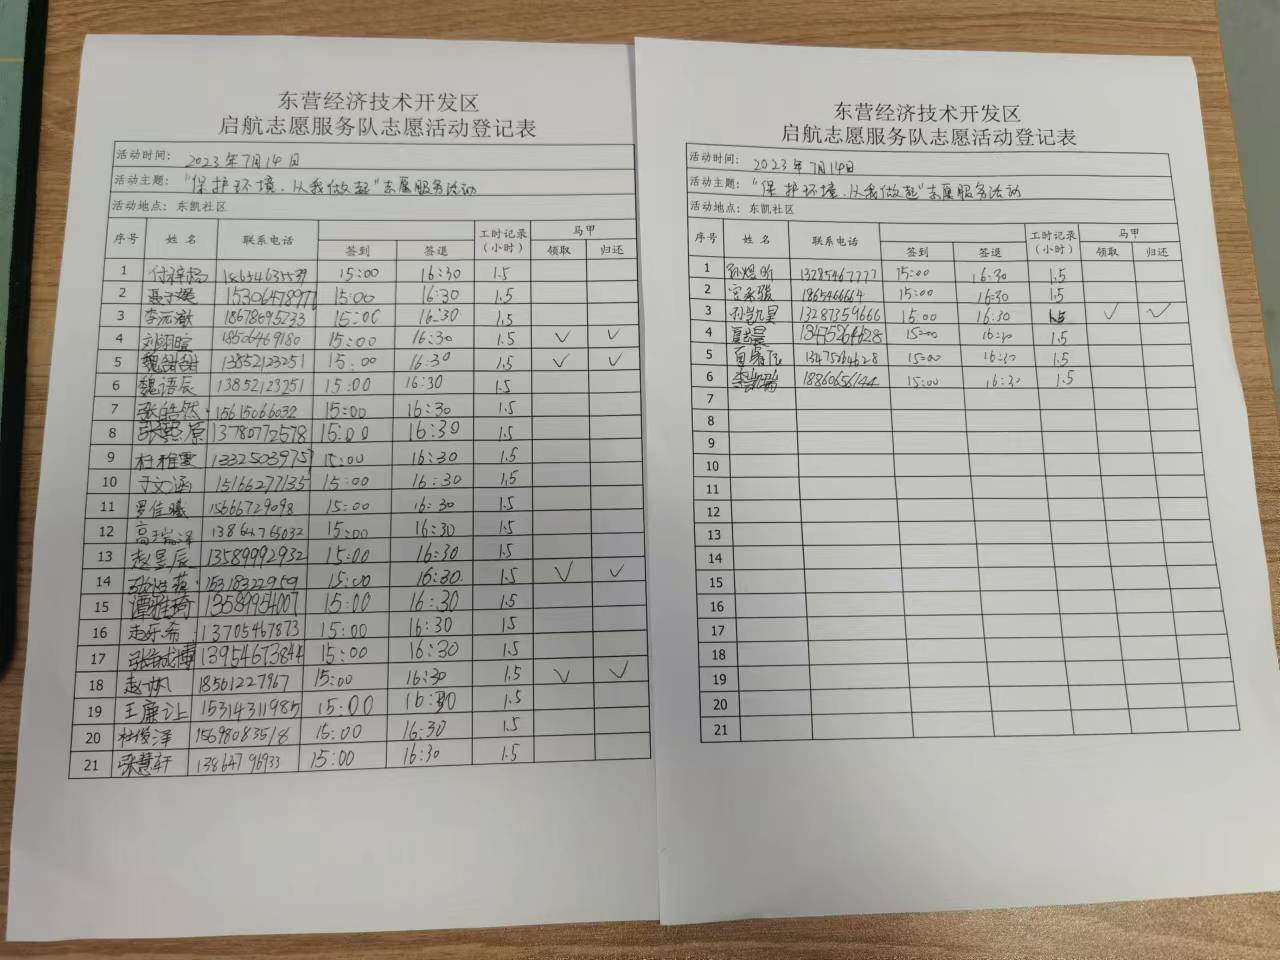 东营经济技术开发区
启航志愿服务队志愿活动登记表
活动时间： 2023年7月14日
活动主题： “保护环境、从我做起”志愿服务活动
活动地点：东凯社区
序号 姓名 联系电话 签到 签退 工时记录（小时） 马甲 领取 归还
1 15:00 16:30 1.5
2 15:00 16:30 1.5
3 李沅澈 18678695233 15:00 16:30 1.5
4 刘翊暄 18506469180 15:00 16:30 1.5 √ √
5 魏甜甜 13852123251 15:00 16:30 1.5 √ √
6 魏语辰 13852123251 15:00 16:30 1.5
7 张皓然 15615066032 15:00 16:30 1.5
8 13780772578 15:00 16:30 1.5
9 杜雅雯 15:00 16:30 1.5
10 于文涵 15166277135 15:00 16:30 1.5
11 罗佳曦 15666729098 15:00 16:30 1.5
12 高瑞泽 15:00 16:30 1.5
13 赵星辰 13589992932 15:00 16:30 1.5
14 15318322959 15:00 16:30 1.5 √ √
15 谭雅琦 13589954007 15:00 16:30 1.5
16 赵乐希 13705467873 15:00 16:30 1.5
17 13954673844 15:00 16:30 1.5
18 18561227967 15:00 16:30 1.5 √ √
19 王廉让 15314311985 15:00 16:30 1.5
20 杜俊泽 15698083518 15:00 16:30 1.5
21 张慧轩 13864796933 15:00 16:30 1.5
东营经济技术开发区
启航志愿服务队志愿活动登记表
活动时间： 2023年7月14日
活动主题： “保护环境、从我做起”志愿服务活动
活动地点：东凯社区
序号 姓名 联系电话 签到 签退 工时记录（小时） 马甲 领取 归还
1 孙煜昕 13285467777 15:00 16:30 1.5
2 1865466664 15:00 16:30 1.5
3 孙凯星 13287359666 15:00 16:30 1.5 √ √
4 13475264628 15:00 16:30 1.5
5 15:00 16:30 1.5
6 李凯瑞 18860656144 15:00 16:30 1.5
7
8
9
10
11
12
13
14
15
16
17
18
19
20
21